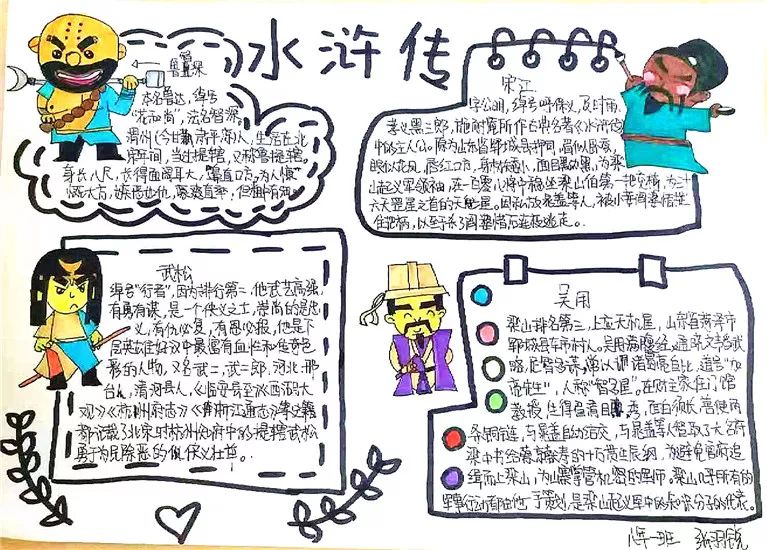 水浒传
鲁智深
本名鲁达，绰号
“花和尚”，法名智深。
渭州（今甘肃省平凉）人，生活在北
宋年间，当过提辖，又称鲁提辖。
身长八尺，长得面阔耳大，鼻直口方。为人慷
慨大方，嫉恶如仇，豪爽直率，但粗中有细。
宋江
字公明，绰号呼保义、及时雨、
孝义黑三郎，施耐庵所作古典名著《水浒传》
中的主人公。原为山东省郓城县押司，
眼似
山起义军领袖，在一百零八将中稳坐梁山伯第一把交椅，为三十
六天罡星之首的天魁星。因私放晁盖等人，被小妾阎婆惜
住把柄，以至于杀了阎婆惜后连夜逃走。
武松
绰号“行者”，因为排行第二，他武艺高强，
有勇有谋，是一个侠义之士，崇尚的是忠
义，有仇必复，有恩必报，他是下
层英雄好汉中最富有血性和传奇色
彩的人物，又名武二、武二郎，河北邢
台人，清河县人，《临安县志》《西湖大
观》《杭州府志》《浙江通志》等史籍
都记载了北宋时杭州知府中的提辖武松
勇于为民除恶的侠义壮举。
吴用
梁山排名第三，上应天机星，山东省菏泽市
郓城县车市村人。吴用满腹经纶，通晓文韬武
略，足智多谋，常以诸葛亮自比，道号“加
亮先生”，人称“智多星”。在财主家任门馆
教授，生得眉清目秀，面白须长，善使两
条铜链，与晁盖自幼结交，与晁盖等人智取了大名府
梁中书给蔡京献寿的十万贯生辰纲，为避免官府追
缉而上梁山，为山寨掌管机密的军师。梁山几乎所有的
军事行动都由他一手策划，是梁山起义军中的知识分子的代表。
八年一班